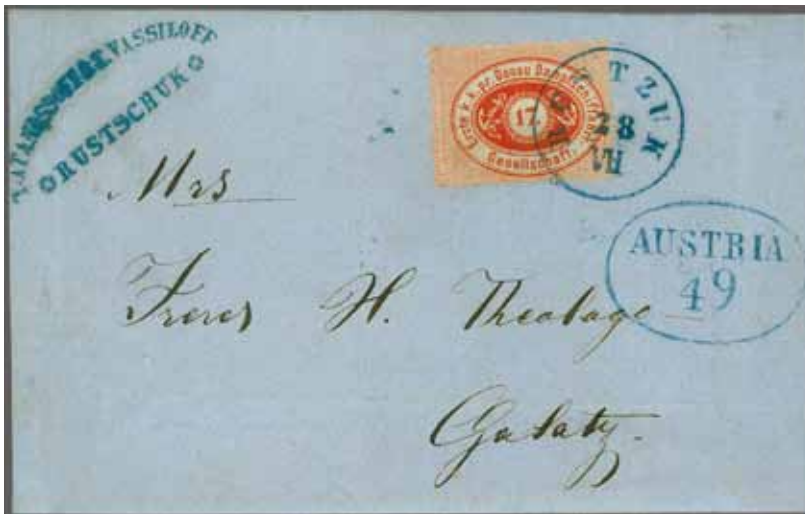 VASSILOFF
RUSTSCHUK
Erste k. k. pr. Donau Dampfschifffahrt
17.
Gesellschaft.
TZUK
28
VII
AUSTRIA
49
Mrs
Freres H. Theologo
Galatz.